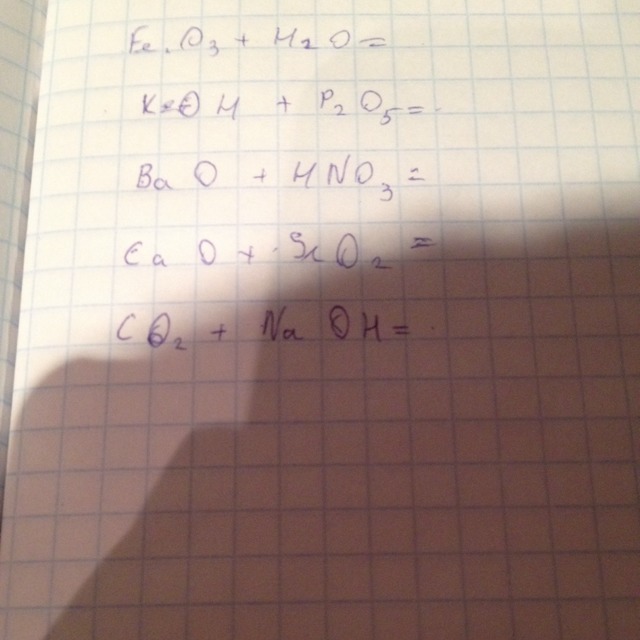 Fe.O₃ + H₂O =
KOH + P₂O₅ =
BaO + HNO₃ =
CaO + SiO₂ =
CO₂ + NaOH =